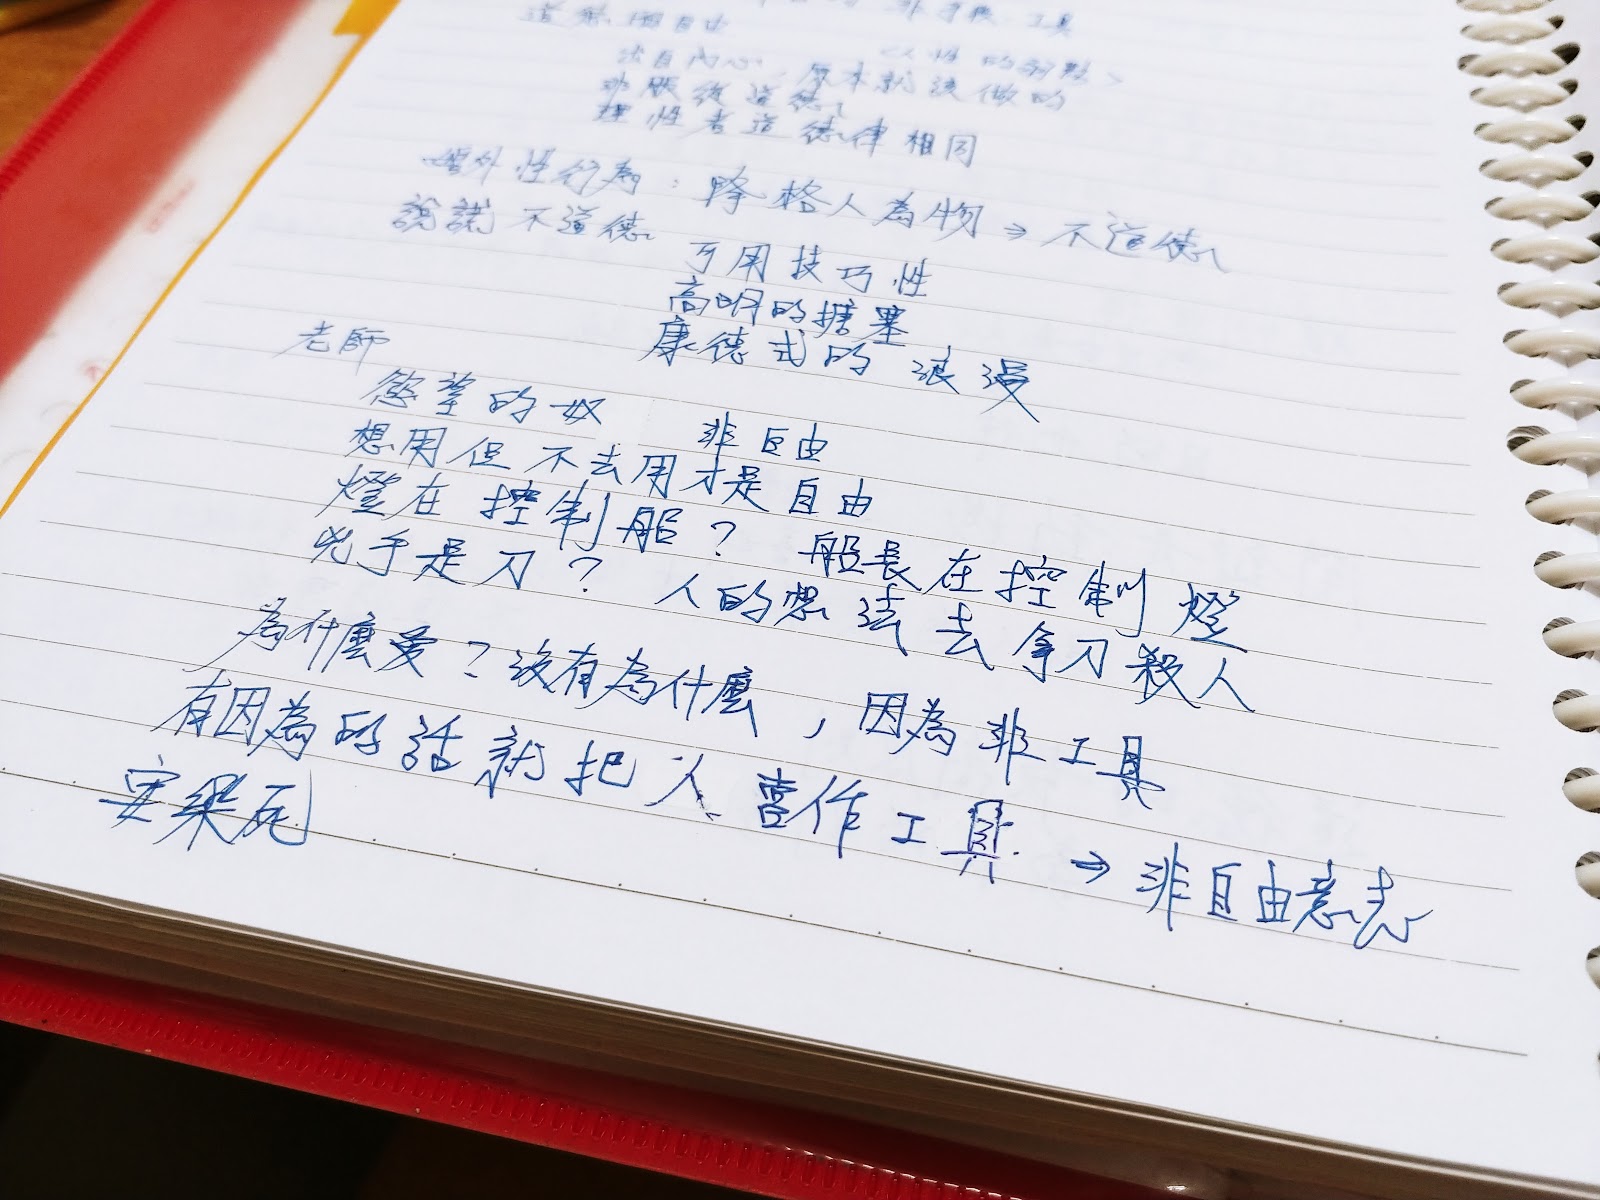 非手段 工具
道德 自由
出自內心, 原本就該做的
<人性的弱點>
非服從道德
理性者道德律相同
婚外性行為：降格人為物→不道德
說謊 不道德
可用技巧性
高明的搪塞
康德式的 浪漫
老師
慾望的奴 非自由
想用但不去用才是自由
燈在控制船？ 船長在控制燈
兇手是刀？ 人的想法去拿刀殺人
為什麼愛？沒有為什麼，因為非工具
有因為的話就把人當作工具→非自由意志
安樂死